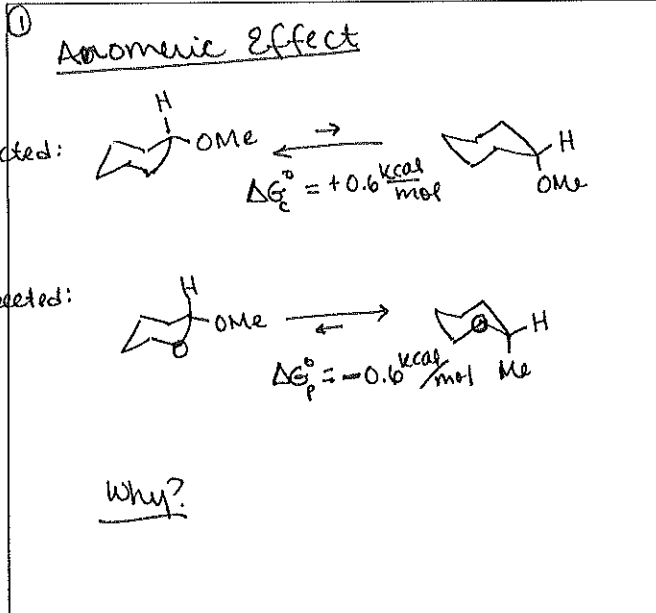 ①
Anomeric Effect
H
cted: OMe ⇌ H
ΔG°c = +0.6 kcal/mol OMe
H
ected: OMe ⇌ O H
O
ΔG°p = -0.6 kcal/mol Me
Why?